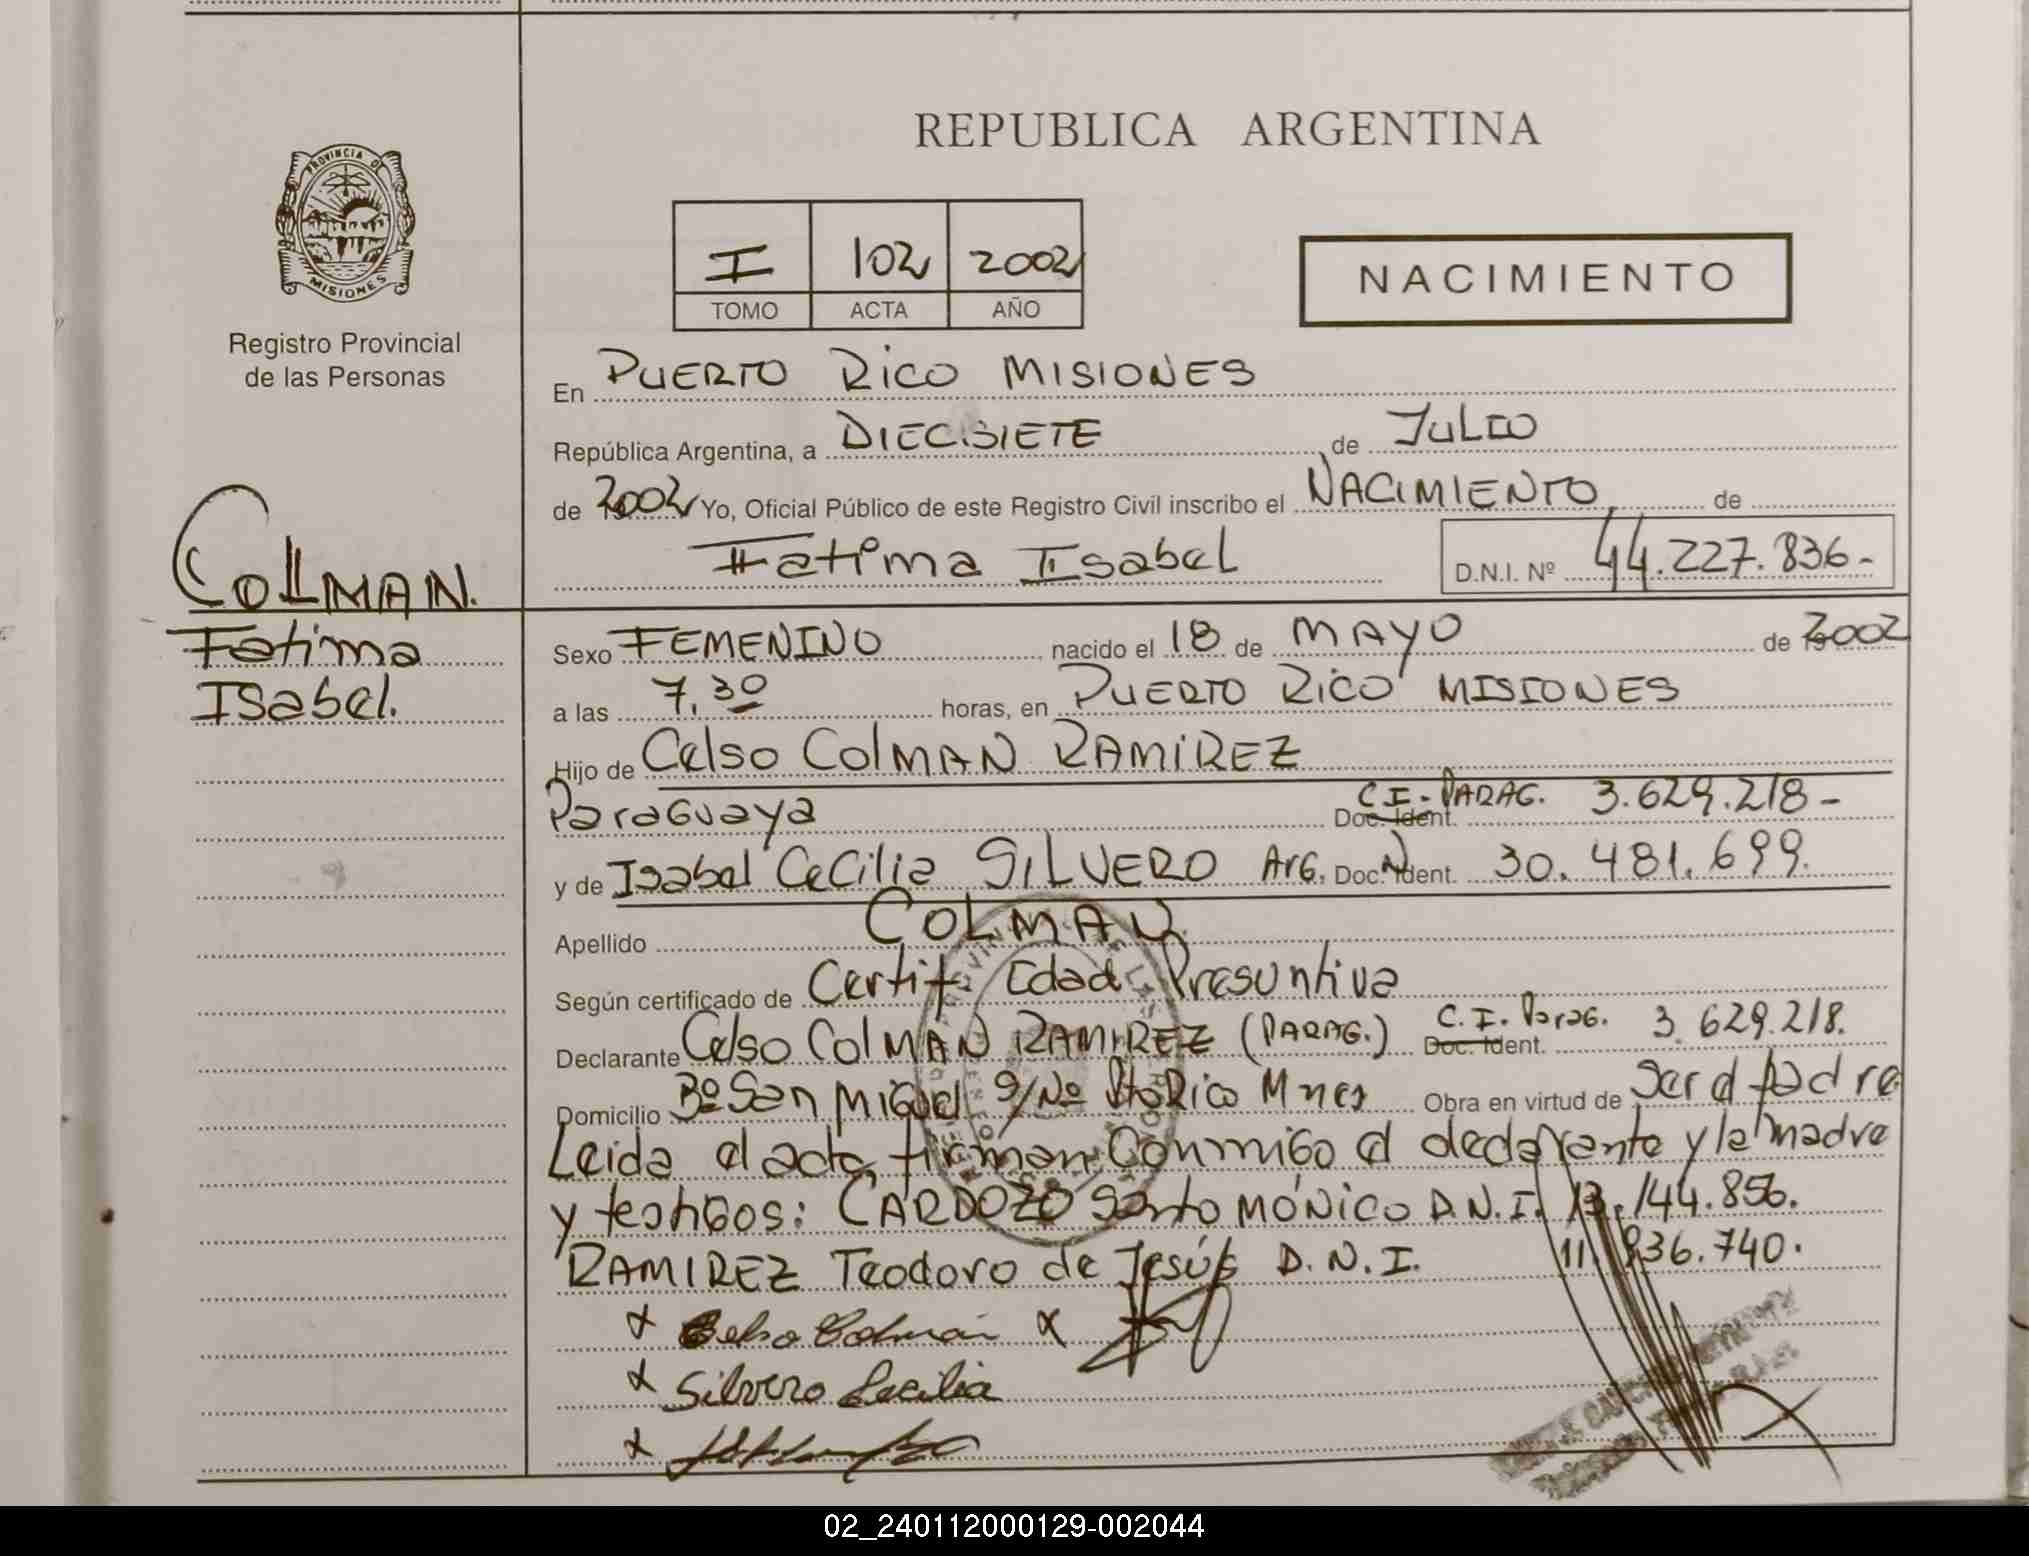 REPUBLICA ARGENTINA
PROVINCIA DE
MISIONES
Registro Provincial
de las Personas
I 102 2002
TOMO ACTA AÑO
NACIMIENTO
En PUERTO RICO MISIONES
República Argentina, a DIECISIETE de JULIO
de 2002 Yo, Oficial Público de este Registro Civil inscribo el NACIMIENTO de
Fatima Isabel D.N.I. Nº 44.227.836-
COLMAN.
Fatima
Isabel.
Sexo FEMENINO nacido el 18 de MAYO de 2002
a las 7.30 horas, en PUERTO RICO MISIONES
Hijo de Celso COLMAN RAMIREZ
Paraguaya C.I.-PARAG. Doc. Ident. 3.629.218-
y de Isabel Cecilia SILVERO Arg. Doc. N Ident. 30.481.699.
Apellido COLMAN
Según certificado de Certif. Edad Presuntiva
Declarante Celso COLMAN RAMIREZ (PARAG.) C.I. Parag. Doc. Ident. 3.629.218.
Domicilio Bº San Miguel S/Nº Pto Rico Mnes Obra en virtud de ser el padre
Leida el acta, firman conmigo el declarante y la madre
y testigos: CARDOZO Santo MÓNICO D.N.I. 13.144.856.
RAMIREZ Teodoro de Jesús D.N.I. 11.836.740.
x Celso Colman x
x Silvero Cecilia
x
02_240112000129-002044